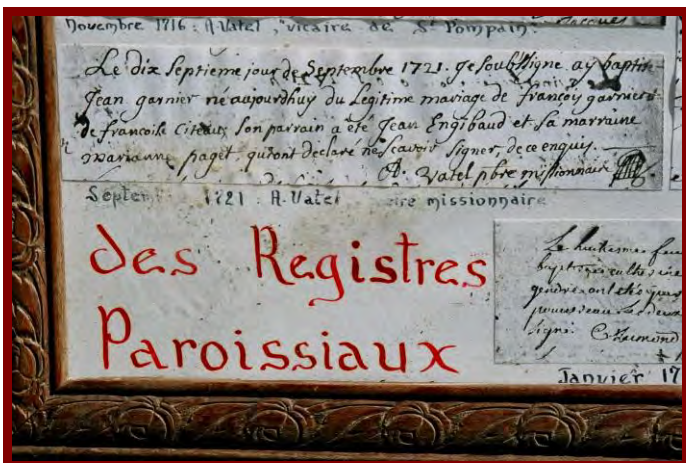 Jacques
Novembre 1716 : A. Vatel , vicaire de St Pompain.
Le dix Septieme jour de Septembre 1721. Je Soubssigne ay baptise
Jean garnier né aujourdhuy du Legitime mariage de françois garnier &
de francoise Citeau, Son parrain a été Jean Engibaud et Sa marraine
marianne paget, qui ont declaré ne Scavoir Signer, de ce enquis.
A. Vatel pbre missionnaire
Septem 1721 : A. Vatel missionnaire
des Registres
Paroissiaux
Le huitiesme
Signé. C Raimond
Janvier 17